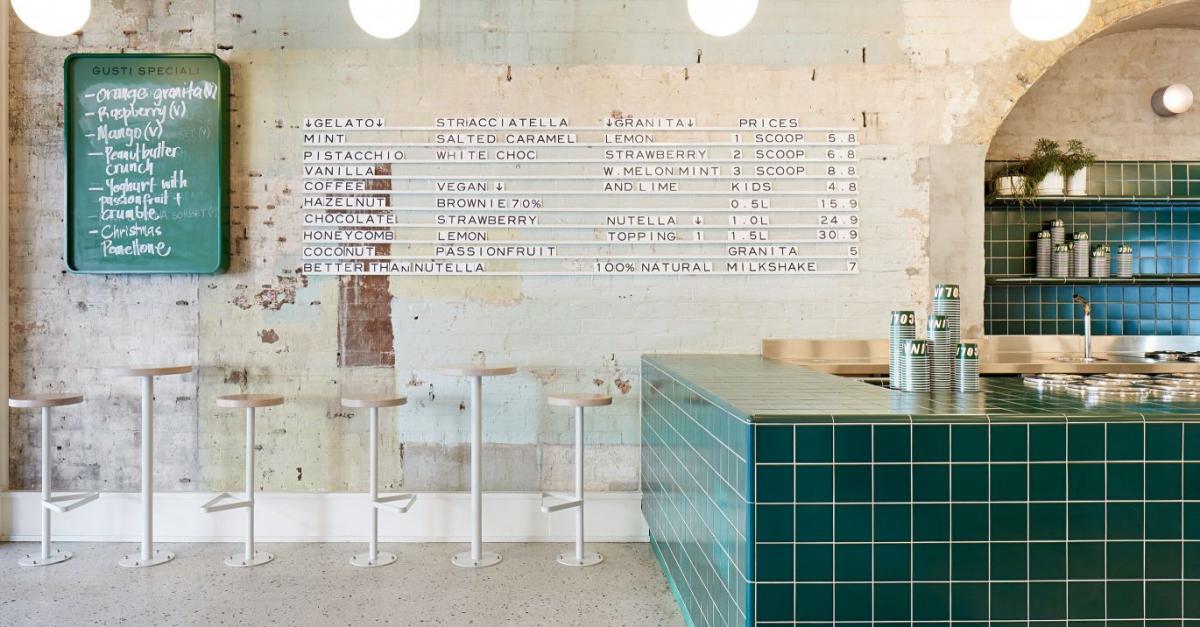 GUSTI SPECIALI
- Orange granita (v)
- Raspberry (v)
- Mango (v)
- Peanut butter
crunch
- Yoghurt with
passionfruit +
crumble
- Christmas
Panettone
↓GELATO↓ STRACCIATELLA ↓GRANITA↓ PRICES
MINT SALTED CARAMEL LEMON 1 SCOOP 5.8
PISTACCHIO WHITE CHOC STRAWBERRY 2 SCOOP 6.8
VANILLA W.MELON MINT 3 SCOOP 8.8
COFFEE VEGAN ↓ AND LIME KIDS 4.8
HAZELNUT BROWNIE 70% 0.5L 15.9
CHOCOLATE STRAWBERRY NUTELLA ↓ 1.0L 24.9
HONEYCOMB LEMON TOPPING 1 1.5L 30.9
COCONUT PASSIONFRUIT GRANITA 5
BETTER THAN NUTELLA 100% NATURAL MILKSHAKE 7